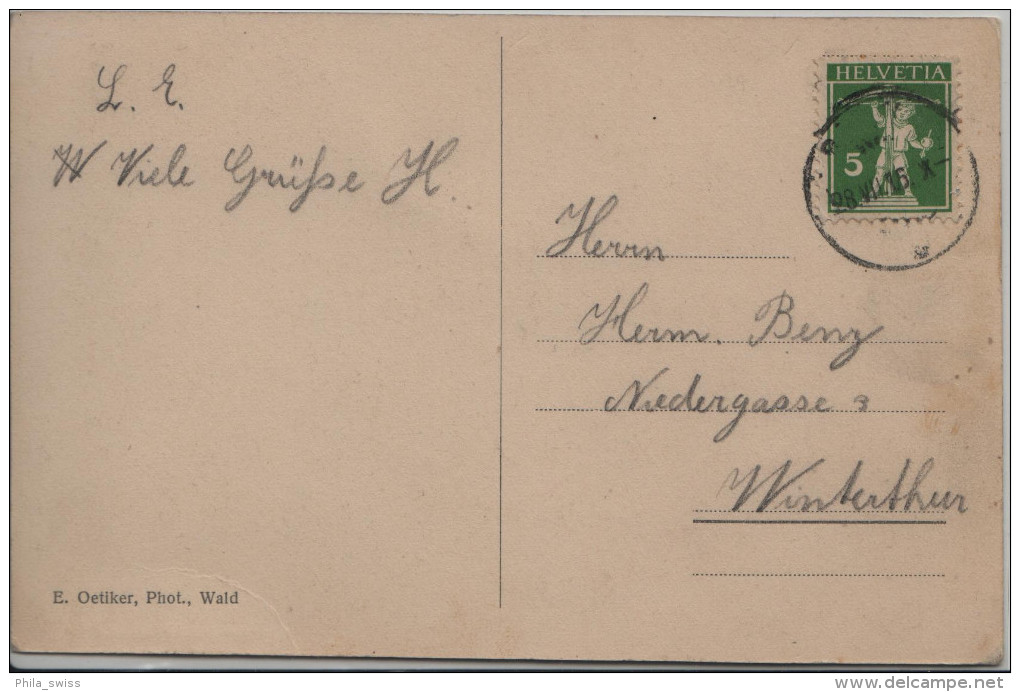 L. E.
Viele Grüsse H.
E. Oetiker, Phot., Wald
HELVETIA
5
Herrn
Herm. Benz
Niedergasse 3
Winterthur
Phila_swiss
www.delcampe.net